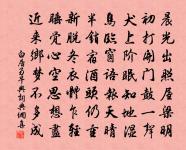 晨光出照屋梁明
初打開門鼓一聲
犬上階眠知地濕
鳥臨窗語報天晴
半銷宿酒頭仍重
新脫冬衣體乍輕
睡覺心空思想盡
近來鄉夢不多成
白居易早興